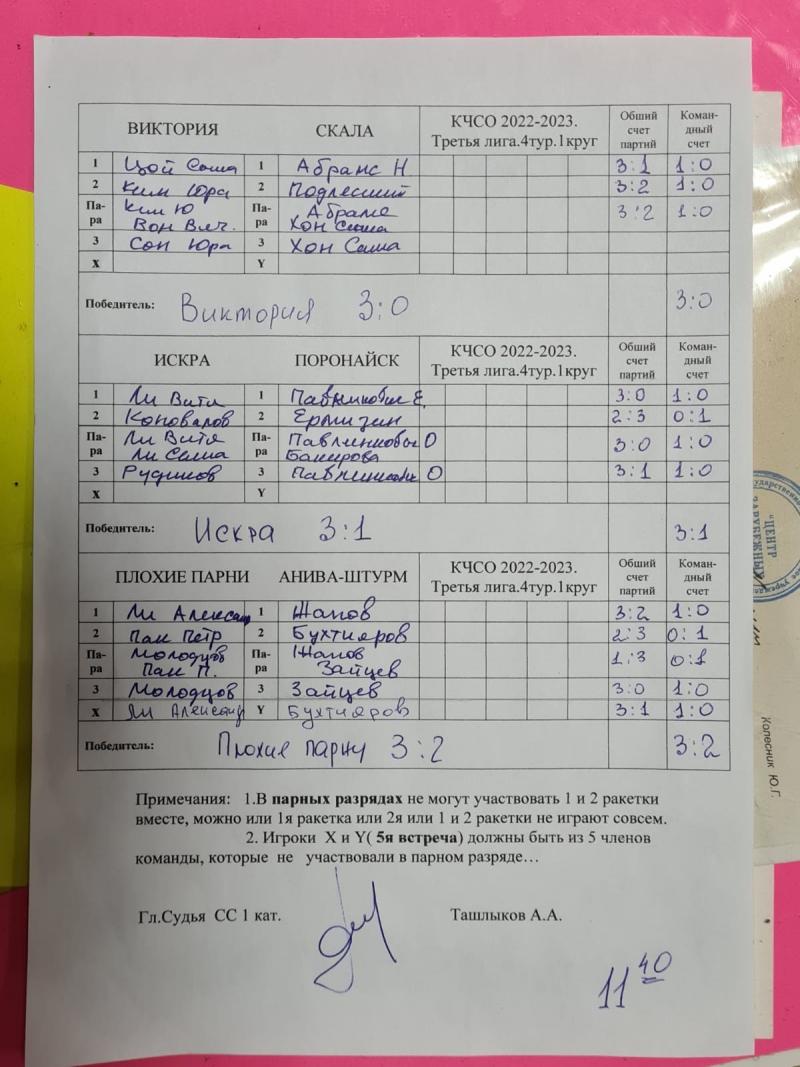 ВИКТОРИЯ СКАЛА КЧСО 2022-2023. Третья лига.4тур.1круг Обший счет партий Коман-дный счет
1 Цой Саша 1 Абранс Н 3:1 1:0
2 Ким Юра 2 Подлесный 3:2 1:0
Па-ра Ким Ю Па-ра Абрамс 3:2 1:0
Вон Вяч. Хон Саша
3 Сон Юра 3 Хон Саша
X Y
Победитель: Виктория 3:0 3:0
ИСКРА ПОРОНАЙСК КЧСО 2022-2023. Третья лига.4тур.1круг Обший счет партий Коман-дный счет
1 Ли Витя 1 Е. 3:0 1:0
2 Коновалов 2 Ермизин 2:3 0:1
Па-ра Ли Витя Па-ра О 3:0 1:0
Ли Саша Бакирова
3 Рудиков 3 О 3:1 1:0
X Y
Победитель: Искра 3:1 3:1
ПЛОХИЕ ПАРНИ АНИВА-ШТУРМ КЧСО 2022-2023. Третья лига.4тур.1круг Обший счет партий Коман-дный счет
1 Ли Александ 1 Жапов 3:2 1:0
2 Пак Петр 2 Бухтияров 2:3 0:1
Па-ра Молодцов Па-ра Жапов 1:3 0:1
Пак П. Зайцев
3 Молодцов 3 Зайцев 3:0 1:0
X Ли Александр Y Бухтияров 3:1 1:0
Победитель: Плохие парни 3:2 3:2
Примечания: 1.В парных разрядах не могут участвовать 1 и 2 ракетки
вместе, можно или 1я ракетка или 2я или 1 и 2 ракетки не играют совсем.
2. Игроки X и Y( 5я встреча) должны быть из 5 членов
команды, которые не участвовали в парном разряде…
Гл.Судья СС 1 кат. Ташлыков А.А.
11 40
Колесник Ю.Г.
"ЦЕНТР